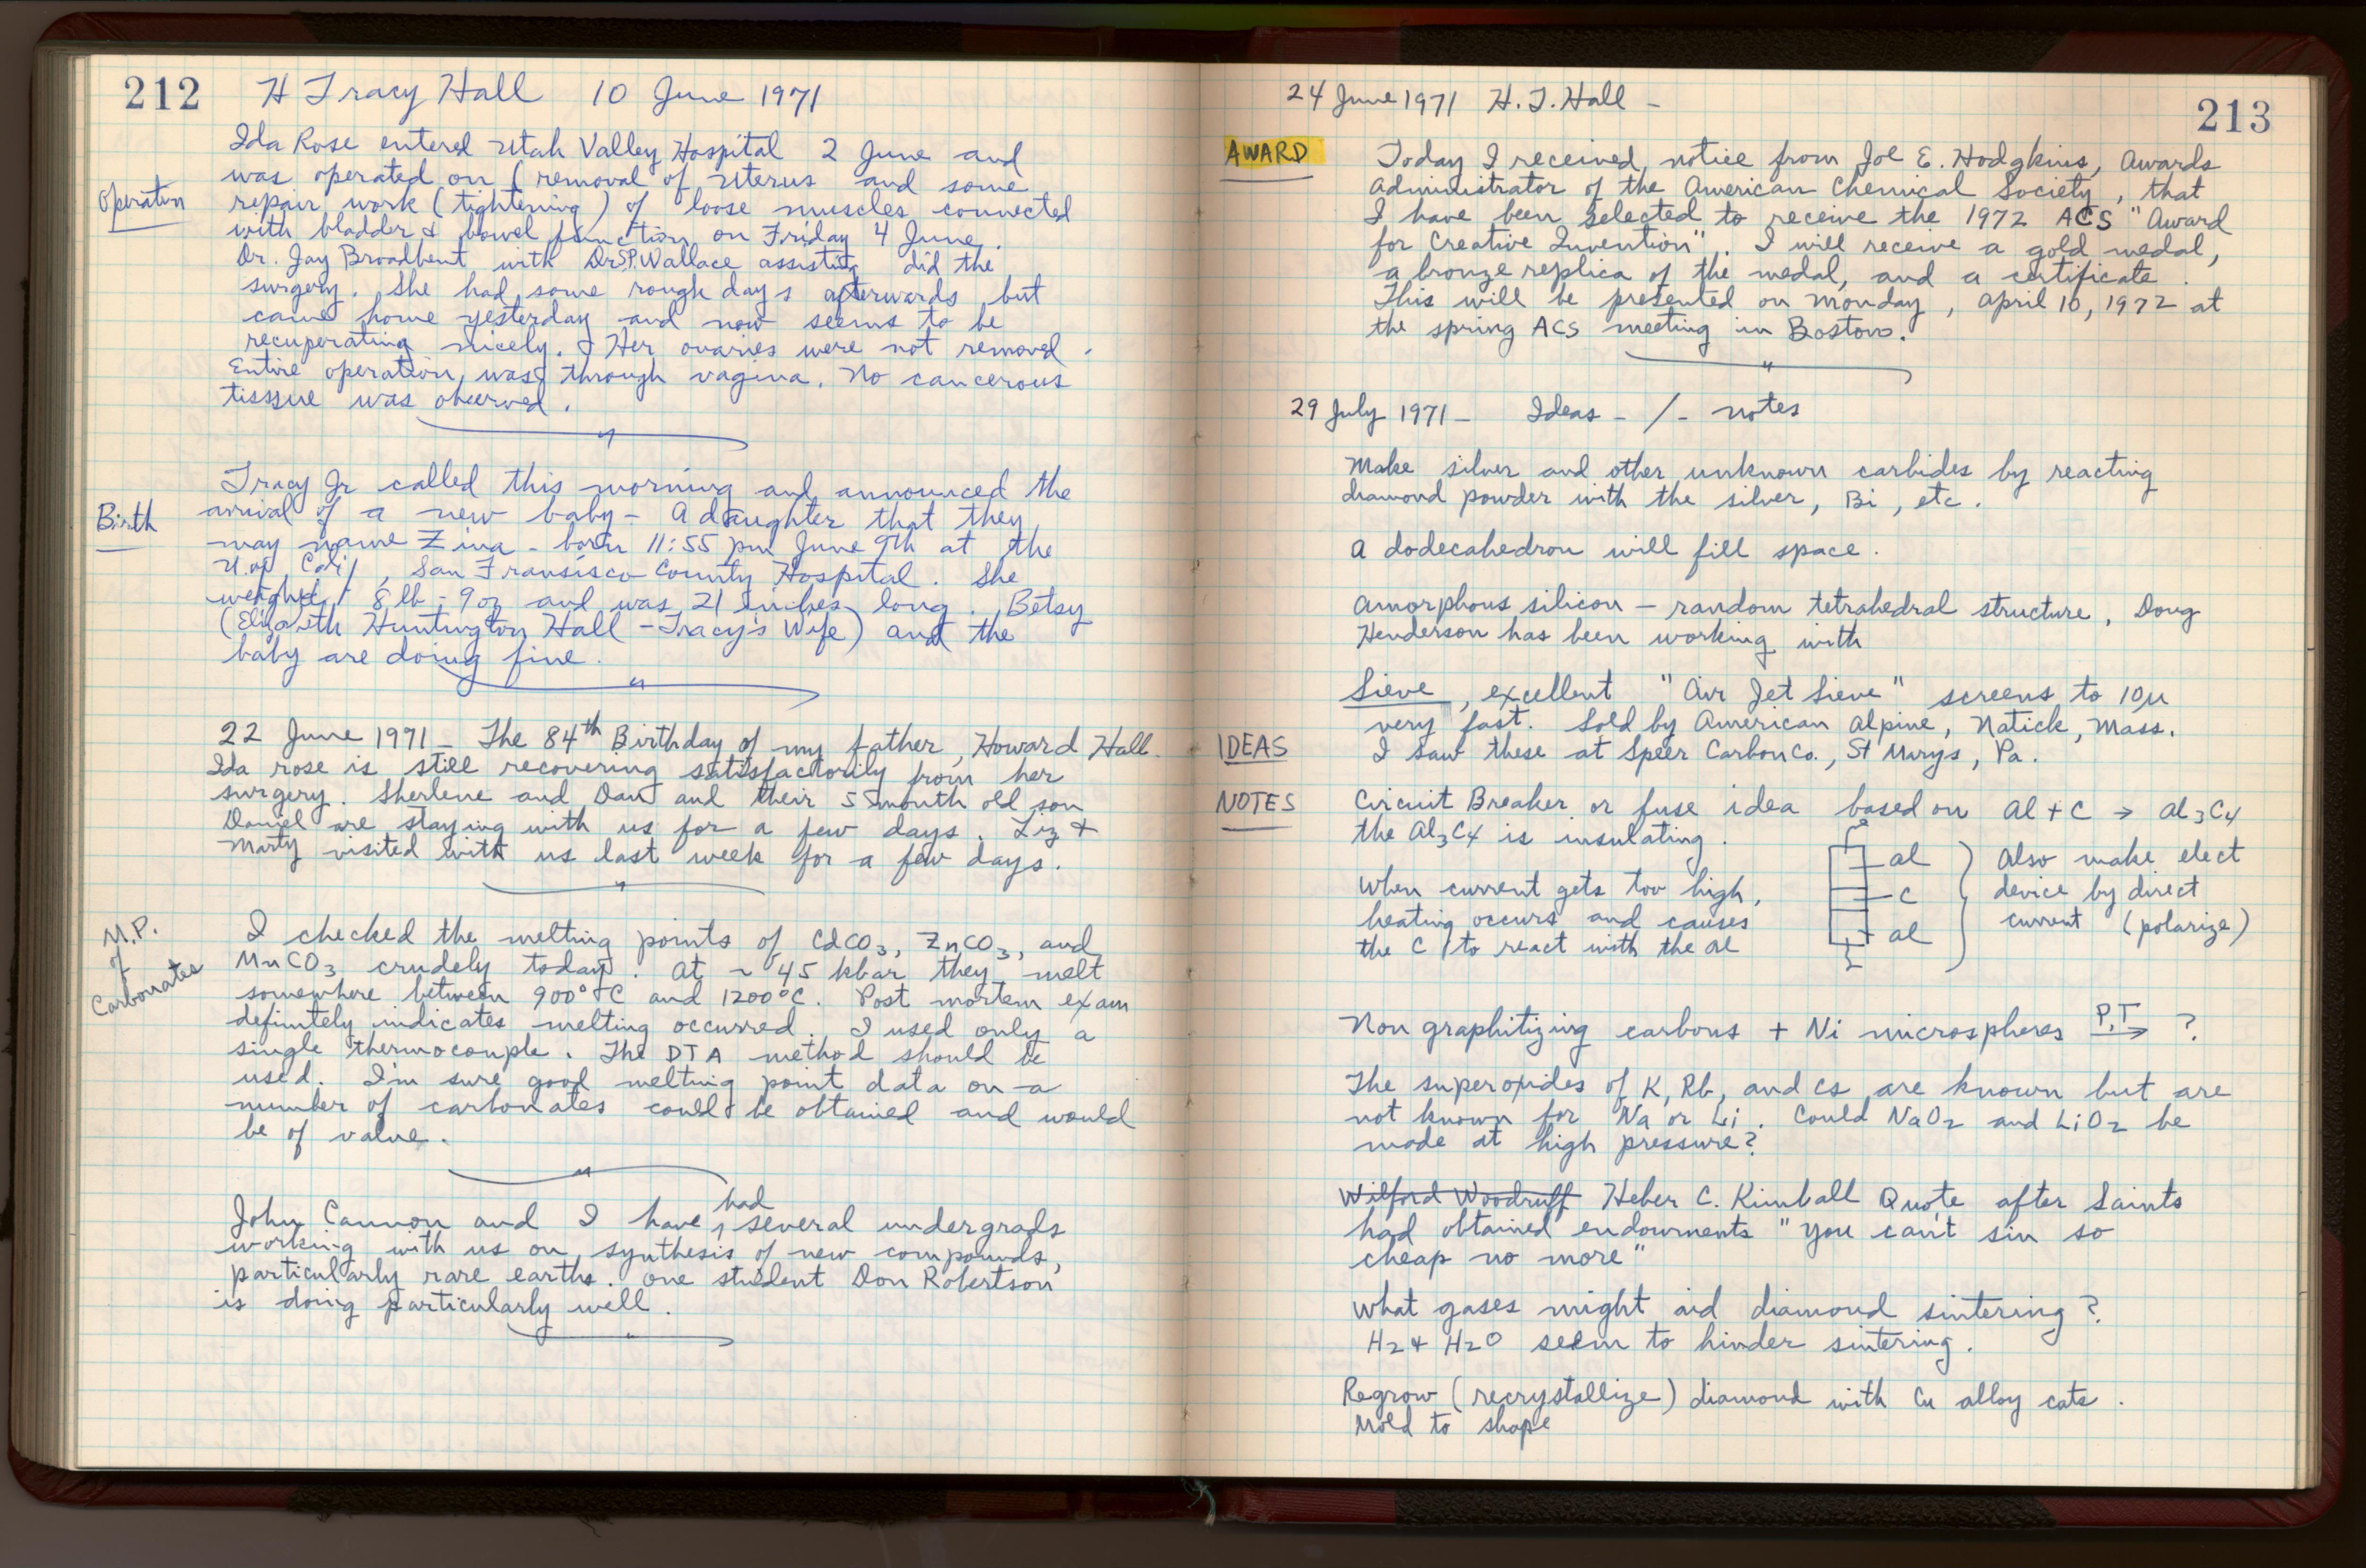 212 H Tracy Hall 10 June 1971
Ida Rose entered Utah Valley Hospital 2 June and
was operated on (removal of uterus and some
Operation repair work (tightening) of loose muscles connected
with bladder & bowel function on Friday 4 June.
Dr. Jay Broadbent with Dr S.P. Wallace assisting did the
surgery. She had some rough days afterwards but
came home yesterday and now seems to be
recuperating nicely. Her ovaries were not removed.
Entire operation was through vagina. No cancerous
tisssue was observed.
Tracy Jr called this morning and announced the
Birth arrival of a new baby - A daughter that they
may name Zina - born 11:55 pm June 9th at the
U. of Calif, San Fransisco County Hospital. She
weighed 8 lb - 9 oz and was 21 inches long. Betsy
(Elizabith Huntington Hall - Tracy's Wife) and the
baby are doing fine.
22 June 1971 - The 84th Birthday of my father, Howard Hall.
Ida rose is still recovering satisfactorily from her
surgery. Sherlene and Dan and their 5 month old son
Daniel are staying with us for a few days. Liz &
Marty visited with us last week for a few days.
M.P.
of
Carbonates
I checked the melting points of CdCO3, ZnCO3, and
MnCO3 crudely today. At ~ 45 kbar they melt
somewhere between 900°C and 1200°C. Post mortem exam
definitely indicates melting occurred. I used only a
single thermocouple. The DTA method should be
used. I'm sure good melting point data on a
number of carbonates could be obtained and would
be of value.
had
John Cannon and I have several undergrads
working with us on synthesis of new compounds,
particularly rare earths. One student Don Robertson
is doing particularly well.
24 June 1971 H. T. Hall -
213
AWARD Today I received notice from Joe E. Hodgkins, Awards
Administrator of the American Chemical Society, that
I have been selected to receive the 1972 ACS "Award
for Creative Invention". I will receive a gold medal,
a bronze replica of the medal, and a certificate.
This will be presented on Monday, April 10, 1972 at
the spring ACS meeting in Boston.
29 July 1971 - Ideas - / - notes
Make silver and other unknown carbides by reacting
diamond powder with the silver, Bi, etc.
A dodecahedron will fill space.
Amorphous silicon - random tetrahedral structure, Doug
Henderson has been working with
Sieve, excellent "Air Jet Sieve" screens to 10μ
very fast. Sold by American Alpine, Natick, Mass.
IDEAS I saw these at Speer Carbon Co., St Marys, Pa.
NOTES Circuit Breaker or fuse idea based on Al + C → Al3C4
the Al3C4 is insulating.
When current gets too high,
heating occurs and causes
the C to react with the Al
Al
C
Al
Also make elect
device by direct
current (polarize)
Non graphitizing carbons + Ni microspheres P,T → ?
The superoxides of K, Rb, and Cs are known but are
not known for Na or Li. Could NaO2 and LiO2 be
made at high pressure?
Wilford Woodruff Heber C. Kimball Quote after Saints
had obtained endowments "You can't sin so
cheap no more"
What gases might aid diamond sintering?
H2 & H2O seem to hinder sintering.
Regrow (recrystallize) diamond with Cu alloy cats.
Mold to shape